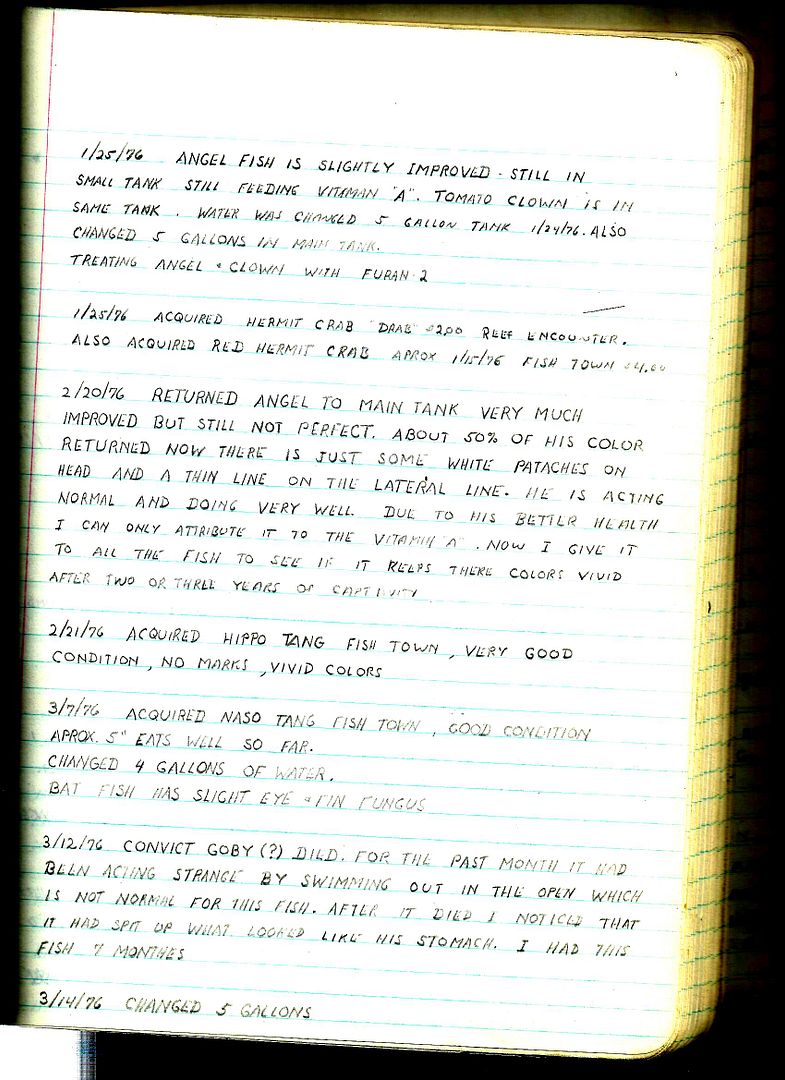 1/25/76 ANGEL FISH IS SLIGHTLY IMPROVED - STILL IN
SMALL TANK STILL FEEDING VITAMAN "A". TOMATO CLOWN IS IN
SAME TANK. WATER WAS CHANGED 5 GALLON TANK 1/24/76. ALSO
CHANGED 5 GALLONS IN MAIN TANK.
TREATING ANGEL & CLOWN WITH FURAN-2
1/25/76 ACQUIRED HERMIT CRAB "DRAB" $2.00 REEF ENCOUNTER.
ALSO ACQUIRED RED HERMIT CRAB APROX 1/15/76 FISH TOWN $4.00
2/20/76 RETURNED ANGEL TO MAIN TANK VERY MUCH
IMPROVED BUT STILL NOT PERFECT. ABOUT 50% OF HIS COLOR
RETURNED NOW THERE IS JUST SOME WHITE PATACHES ON
HEAD AND A THIN LINE ON THE LATERAL LINE. HE IS ACTING
NORMAL AND DOING VERY WELL. DUE TO HIS BETTER HEALTH
I CAN ONLY ATTRIBUTE IT TO THE VITAMIN "A". NOW I GIVE IT
TO ALL THE FISH TO SEE IF IT KELPS THERE COLORS VIVID
AFTER TWO OR THREE YEARS OF CAPTIVITY
2/21/76 ACQUIRED HIPPO TANG FISH TOWN, VERY GOOD
CONDITION, NO MARKS, VIVID COLORS
3/7/76 ACQUIRED NASO TANG FISH TOWN, GOOD CONDITION
APROX. 5" EATS WELL SO FAR.
CHANGED 4 GALLONS OF WATER.
BAT FISH HAS SLIGHT EYE & FIN FUNGUS
3/12/76 CONVICT GOBY (?) DIED. FOR THE PAST MONTH IT HAD
BEEN ACTING STRANGE BY SWIMMING OUT IN THE OPEN WHICH
IS NOT NORMAL FOR THIS FISH. AFTER IT DIED I NOTICED THAT
IT HAD SPIT UP WHAT LOOKED LIKE HIS STOMACH. I HAD THIS
FISH 7 MONTHES
3/14/76 CHANGED 5 GALLONS